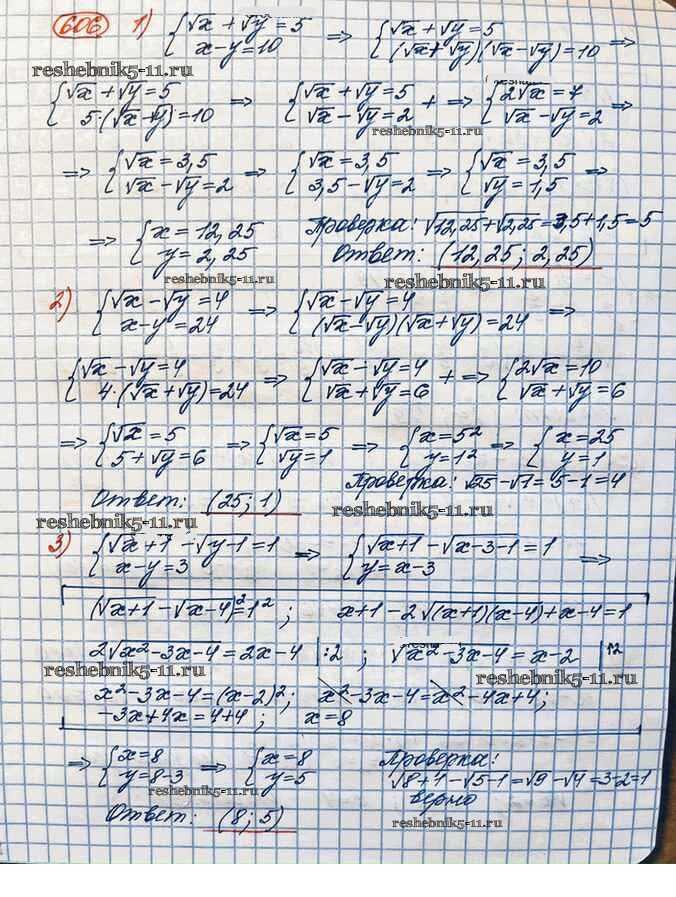 606 1) {√x + √y = 5 ⇒ {√x + √y = 5
x-y=10 (√x+√y)(√x-√y)=10 ⇒
reshebnik5-11.ru
{√x + √y = 5 ⇒ {√x + √y = 5 + ⇒ {2√x = 7
5·(√x-√y)=10 √x-√y=2 √x-√y=2 ⇒
reshebnik5-11.ru
⇒ {√x = 3,5 ⇒ {√x = 3,5 ⇒ {√x = 3,5 ⇒
√x-√y=2 3,5-√y=2 √y=1,5
⇒ {x = 12,25 Проверка: √12,25+√2,25=3,5+1,5=5
y = 2,25 Ответ: (12,25; 2,25)
reshebnik5-11.ru reshebnik5-11.ru
2) {√x - √y = 4 ⇒ {√x - √y = 4
x-y = 24 (√x-√y)(√x+√y)=24 ⇒
{√x-√y=4 ⇒ {√x - √y = 4 + ⇒ {2√x = 10
4·(√x+√y)=24 √x+√y=6 √x+√y=6
⇒ {√x = 5 ⇒ {√x = 5 ⇒ {x = 5² ⇒ {x = 25
5+√y=6 √y=1 y=1² y=1
Проверка: √25-√1=5-1=4
Ответ: (25; 1)
reshebnik5-11.ru reshebnik5-11.ru
3) {√x+1 - √y-1 = 1 ⇒ {√x+1 - √x-3-1 = 1
x-y=3 y=x-3 ⇒
(√x+1 - √x-4)²=1² ; x+1-2√(x+1)(x-4)+x-4=1
2√x²-3x-4 = 2x-4 |:2 ; √x²-3x-4 = x-2 |²
reshebnik5-11.ru reshebnik5-11.ru
x²-3x-4=(x-2)²; x²-3x-4=x²-4x+4;
-3x+4x=4+4 ; x=8
⇒ {x=8 ⇒ {x=8 Проверка:
y=8-3 y=5 √8+1-√5-1=√9-√4=3-2=1
reshebnik5-11.ru верно
Ответ: (8; 5)
reshebnik5-11.ru